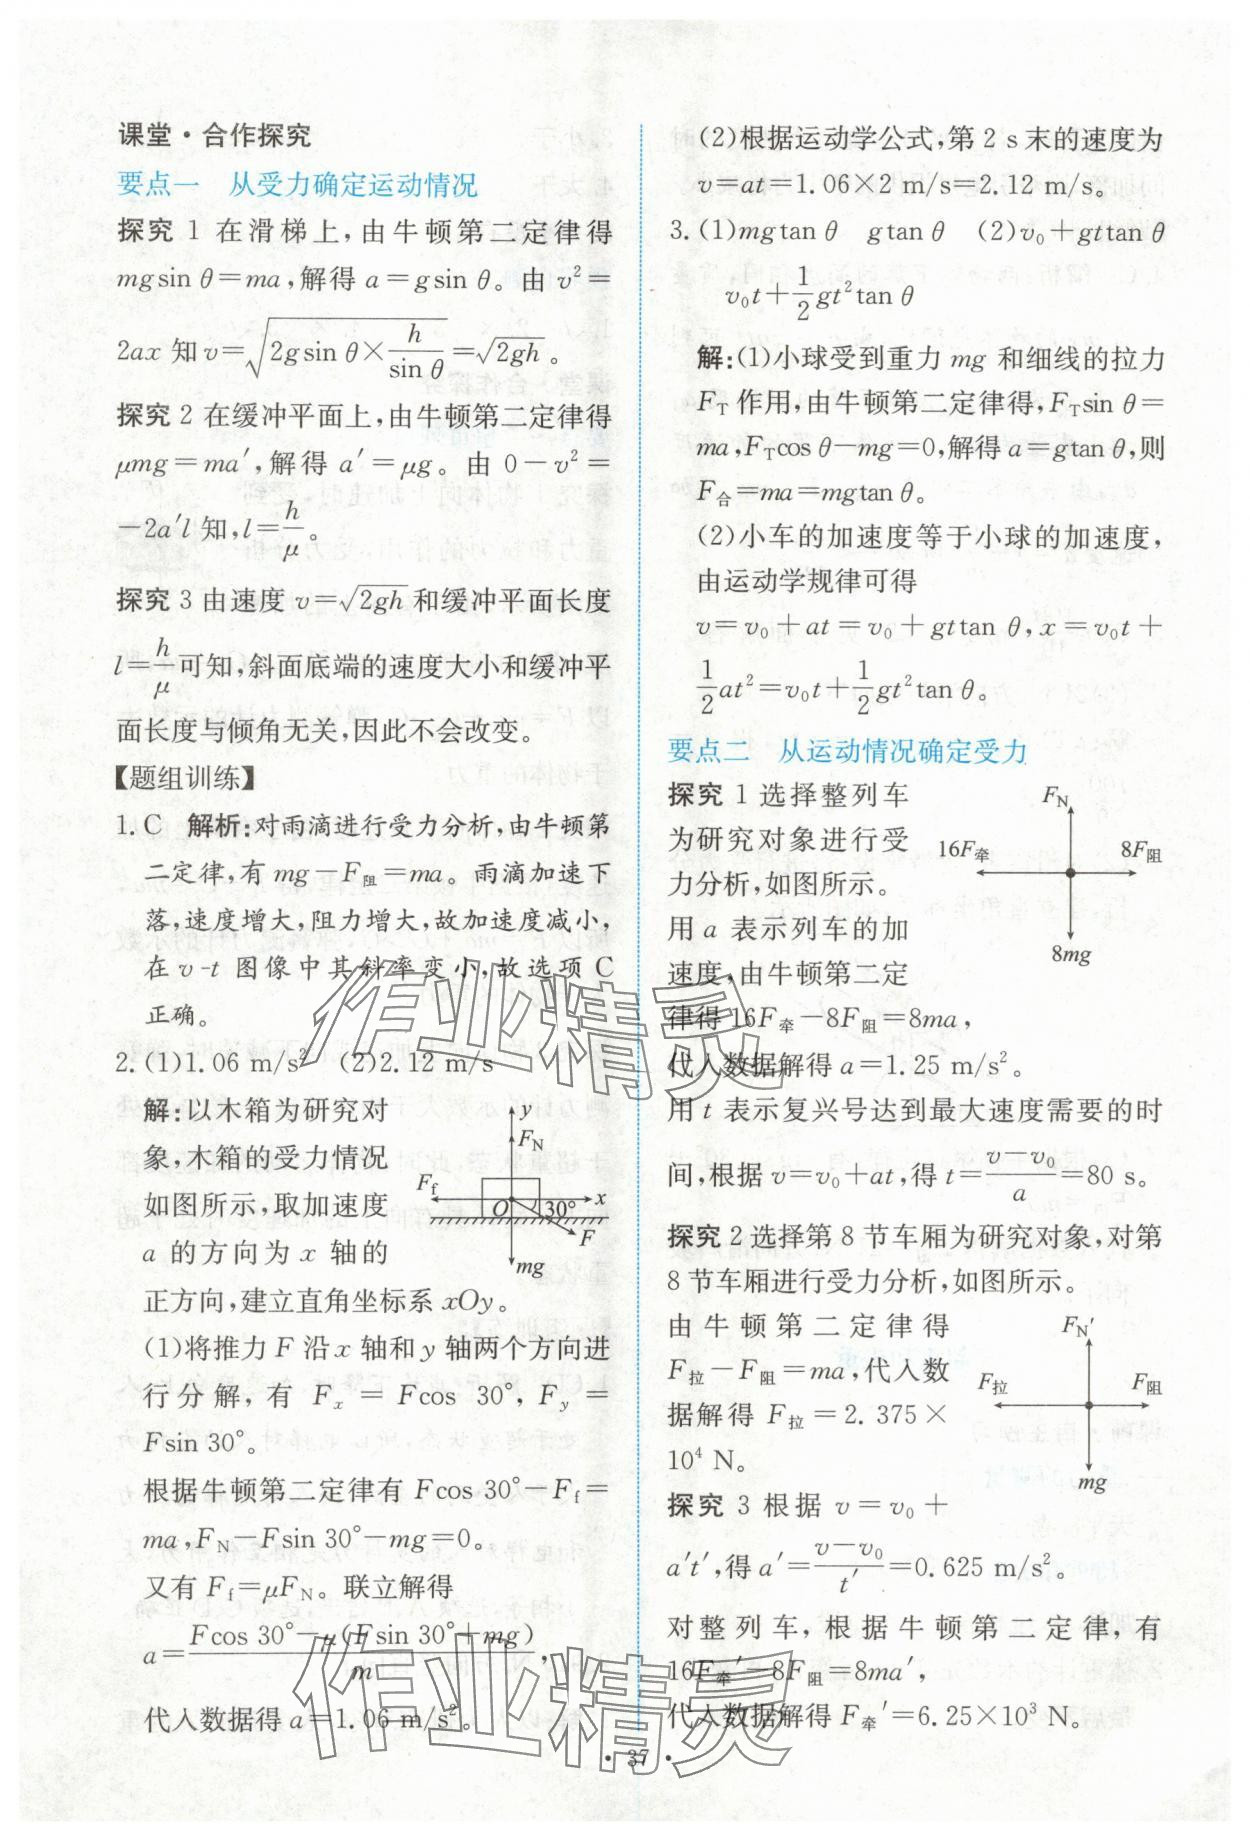 课堂·合作探究
要点一 从受力确定运动情况
探究 1 在滑梯上,由牛顿第二定律得
mgsin θ=ma,解得 a=gsin θ。由 v²=
2ax 知 v=√(2gsin θ×h/sin θ)=√(2gh)。
探究 2 在缓冲平面上,由牛顿第二定律得
μmg=ma′,解得 a′=μg。由 0-v²=
-2a′l 知,l=h/μ。
探究 3 由速度 v=√(2gh) 和缓冲平面长度
l=h/μ可知,斜面底端的速度大小和缓冲平
面长度与倾角无关,因此不会改变。
【题组训练】
1. C 解析:对雨滴进行受力分析,由牛顿第
二定律,有 mg-F阻=ma。雨滴加速下
落,速度增大,阻力增大,故加速度减小,
在 v-t 图像中其斜率变小,故选项 C
正确。
2. (1)1.06 m/s² (2)2.12 m/s
解:以木箱为研究对
象,木箱的受力情况
如图所示,取加速度
a 的方向为 x 轴的
正方向,建立直角坐标系 xOy。
y
FN
Ff
O
30°
x
F
mg
(1)将推力 F 沿 x 轴和 y 轴两个方向进
行分解,有 Fx = Fcos 30°, Fy =
Fsin 30°。
根据牛顿第二定律有 Fcos 30°-Ff=
ma,FN-Fsin 30°-mg=0。
又有 Ff=μFN。联立解得
a=(Fcos 30°-μ(Fsin 30°+mg))/m,
代入数据得 a=1.06 m/s²。
(2)根据运动学公式,第 2 s 末的速度为
v=at=1.06×2 m/s=2.12 m/s。
3. (1)mgtan θ gtan θ (2)v₀+gttan θ
v₀t+1/2gt²tan θ
解:(1)小球受到重力 mg 和细线的拉力
FT 作用,由牛顿第二定律得,FTsin θ=
ma,FTcos θ-mg=0,解得 a=gtan θ,则
F合=ma=mgtan θ。
(2)小车的加速度等于小球的加速度,
由运动学规律可得
v=v₀+at=v₀+gttan θ,x=v₀t+
1/2at²=v₀t+1/2gt²tan θ。
要点二 从运动情况确定受力
探究 1 选择整列车
为研究对象进行受
力分析,如图所示。
用 a 表示列车的加
速度,由牛顿第二定
律得 16F牵-8F阻=8ma,
FN
16F牵
8F阻
8mg
代入数据解得 a=1.25 m/s²。
用 t 表示复兴号达到最大速度需要的时
间,根据 v=v₀+at,得 t=(v-v₀)/a=80 s。
探究 2 选择第 8 节车厢为研究对象,对第
8 节车厢进行受力分析,如图所示。
由牛顿第二定律得
F拉-F阻=ma,代入数
据解得 F拉=2.375×
10⁴ N。
FN′
F拉
F阻
mg
探究 3 根据 v=v₀+
a′t′,得 a′=(v-v₀)/t′=0.625 m/s²。
对整列车,根据牛顿第二定律,有
16F牵′-8F阻=8ma′,
代入数据解得 F牵′=6.25×10³ N。
· 37 ·
作业精灵
作业精灵